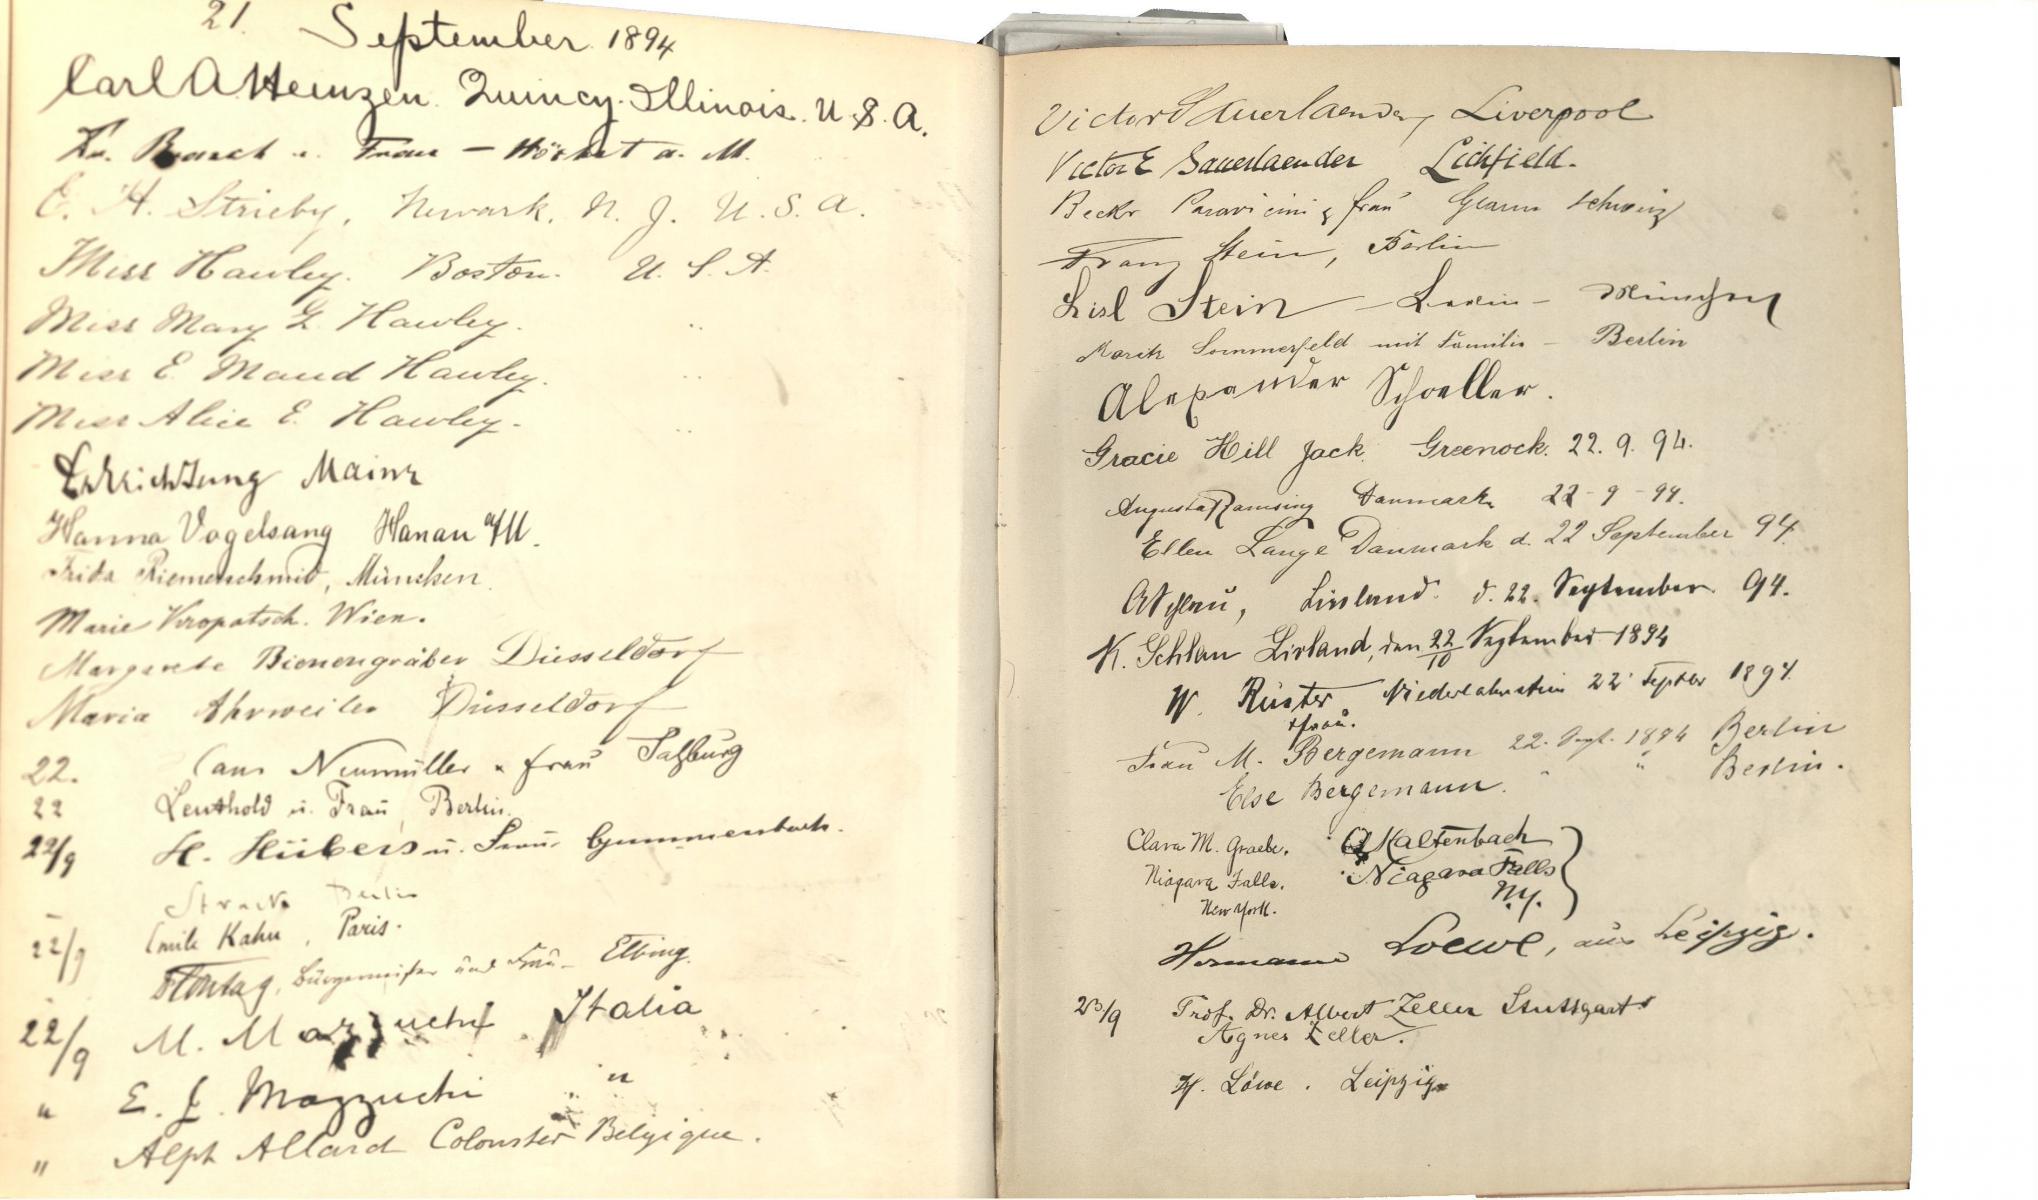 21. September 1894
Carl A Heinzen. Quincy. Illinois. U. S. A.
Fr. Brasch u. Frau — Höchst a. M.
E. H. Strieby, Newark, N. J. U. S. A.
Miss Hawley. Boston. U. S. A.
Miss Mary L. Hawley. "
Miss E. Maud Hawley. "
Miss Alice E. Hawley. "
Mainz
Hanna Vogelsang Hanau a/M.
Frida Riemerschmid, München
Marie Kropatsch. Wien.
Margarete Bienengräber Düsseldorf
Maria Ahrweiler Düsseldorf
22. Neumüller & Frau Salzburg
22 Leuthold u. Frau, Berlin.
22/9 H. Hübers u. Frau Gummersbach.
Berlin
22/9 Emile Kahn, Paris.
Bürgermeister und Frau - Elbing.
22/9 M. Mazzuchi Italia
" E. J. Mazzuchi "
" Alph Allard Colonster Belgique.
Victor Sauerlaender, Liverpool
Victor E Sauerlaender Lichfield.
Becker Paravicini & Frau Glarus Schweiz
Franz Stein, Berlin
Lisl Stein — München
Moritz Sommerfeld mit Familie — Berlin
Alexander Schoeller.
Gracie Hill Jack. Greenock. 22. 9. 94.
Augusta Ramsing Danmark 22 - 9 - 94.
Ellen Lange Danmark d. 22 September 94.
Livland. d. 22. September 94.
K. Schlau Livland, den 22/10 September 1894
W. Rüster Niederlahnstein 22 Septbr 1894.
& Frau.
Frau M. Bergemann 22. Sept. 1894 Berlin
Else Bergemann. " " Berlin.
Clara M. Graebe. Kaltenbach
Niagara Falls. Niagara Falls
New York. N.Y.
Hermann Loewe, aus Leipzig.
23/9 Prof. Dr. Albert Zeller Stuttgart
Agnes Zeller.
H. Löwe. Leipzig